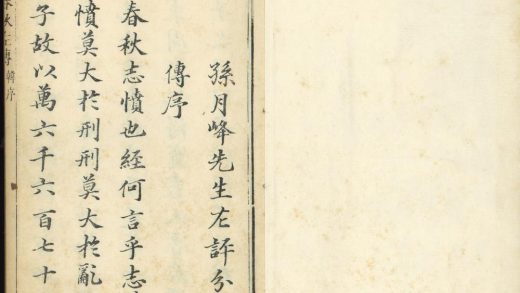 孫月峰先生左評分
傳序
春秋志憤也經何言乎志
憤莫大於刑刑莫大於亂
子故以萬六千六百七十
秋左傳 韓序